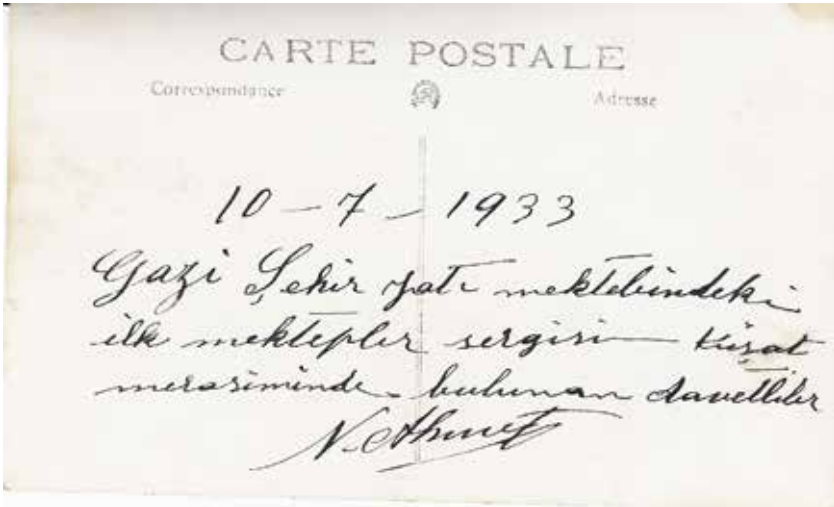 CARTE POSTALE
Correspondance
Adresse
10-7-1933
Gazi Şehir yatı mektebindeki
ilk mektepler sergisi Küşat
merasiminde bulunan davetliler
N. Ahmet